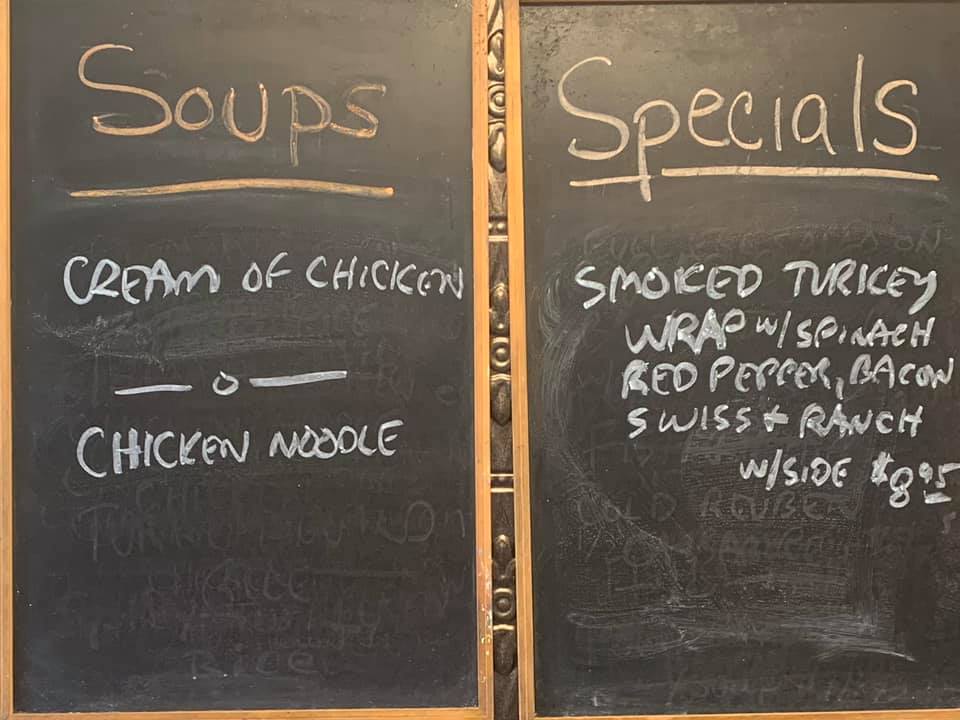 Soups
CREAM OF CHICKEN
— o —
CHICKEN NOODLE
Specials
SMOKED TURKEY
WRAP w/SPINACH
RED PEPPER, BACON
SWISS + RANCH
W/SIDE $8.95
COLD REUBEN
RICE